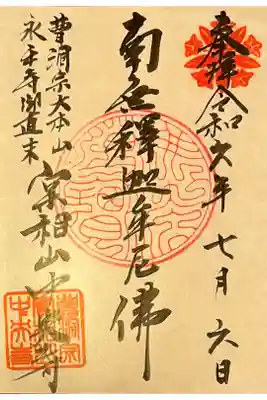 奉拝 令和六年七月六日
南無釋迦牟尼佛
曹洞宗大本山
永平寺御直末
中央寺
曹洞宗
中央寺